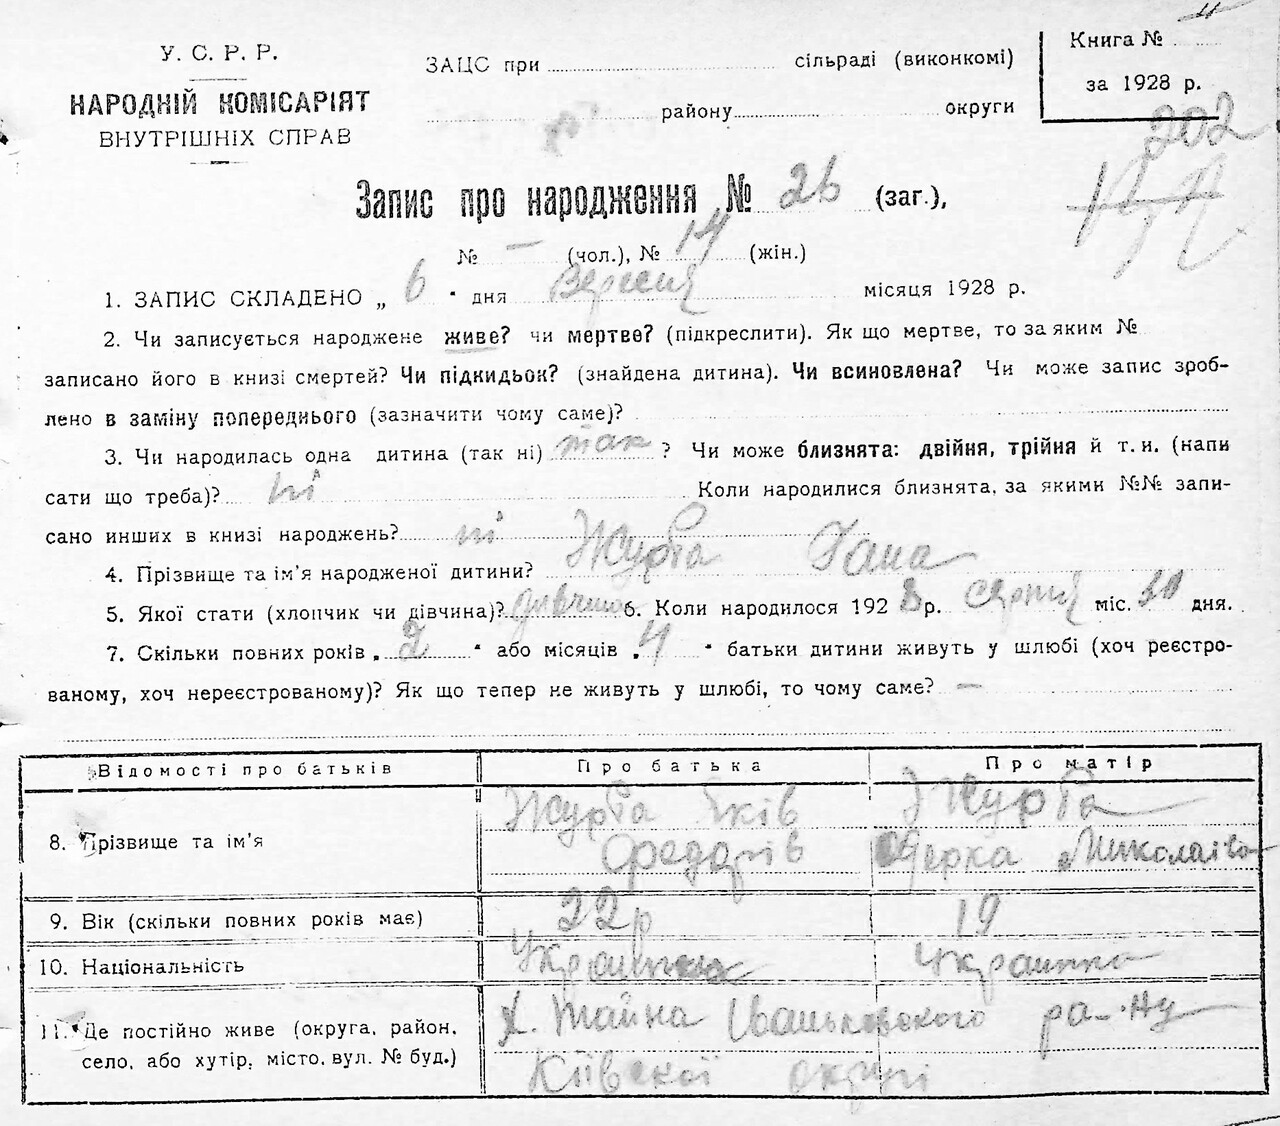 У. С. Р. Р.
НАРОДНІЙ КОМІСАРІЯТ
ВНУТРІШНІХ СПРАВ
ЗАЦС при сільраді (виконкомі)
району округи
Книга №
за 1928 р.
202
Запис про народження № 26 (заг.),
№ — (чол.), № 14 (жін.)
1. ЗАПИС СКЛАДЕНО „ 6 " дня Вересня місяця 1928 р.
2. Чи записується народжене живе? чи мертве? (підкреслити). Як що мертве, то за яким №
записано його в книзі смертей? Чи підкидьок? (знайдена дитина). Чи всиновлена? Чи може запис зроб-
лено в заміну попереднього (зазначити чому саме)?
3. Чи народилась одна дитина (так ні) так ? Чи може близнята: двійня, трійня й т. и. (напи
сати що треба)? ні Коли народилися близнята, за якими №№ запи-
сано инших в книзі народжень? ні
4. Прізвище та ім'я народженої дитини? Журба Гана
5. Якої стати (хлопчик чи дівчина)? дивчина 6. Коли народилось 1928 р. серпня міс. 30 дня.
7. Скільки повних років „ 2 " або місяців „ 4 " батьки дитини живуть у шлюбі (хоч реєстро-
ваному, хоч нереєстрованому)? Як що тепер не живуть у шлюбі, то чому саме? —
Відомості про батьків Про батька Про матір
8. Прізвище та ім'я Журба Яків Журба
Федорів Миколаівна
9. Вік (скільки повних років має) 22р 19
10. Національність Украинка
11. Де постійно живе (округа, район, х. Тайна Іваньковского ра-ну
село, або хутір, місто, вул. № буд.) Київскої округі